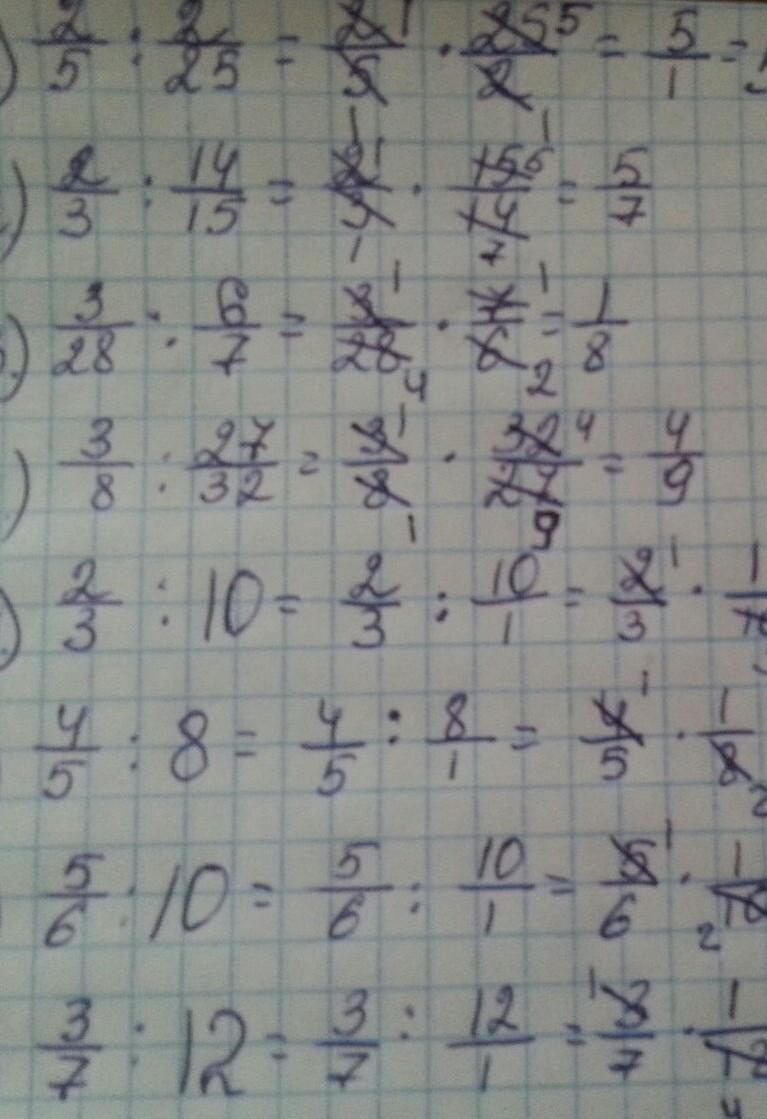 ) 2/5 : 2/25 = 2/5 · 25/2 = 5/1 =
) 2/3 : 14/15 = 2/3 · 15/14 = 5/7
) 3/28 : 6/7 = 3/28 · 7/6 = 1/8
) 3/8 : 27/32 = 3/8 · 32/27 = 4/9
) 2/3 : 10 = 2/3 : 10/1 = 2/3 · 1/10
4/5 : 8 = 4/5 : 8/1 = 4/5 · 1/8
5/6 : 10 = 5/6 : 10/1 = 5/6 · 1/10
3/7 : 12 = 3/7 : 12/1 = 3/7 · 1/12